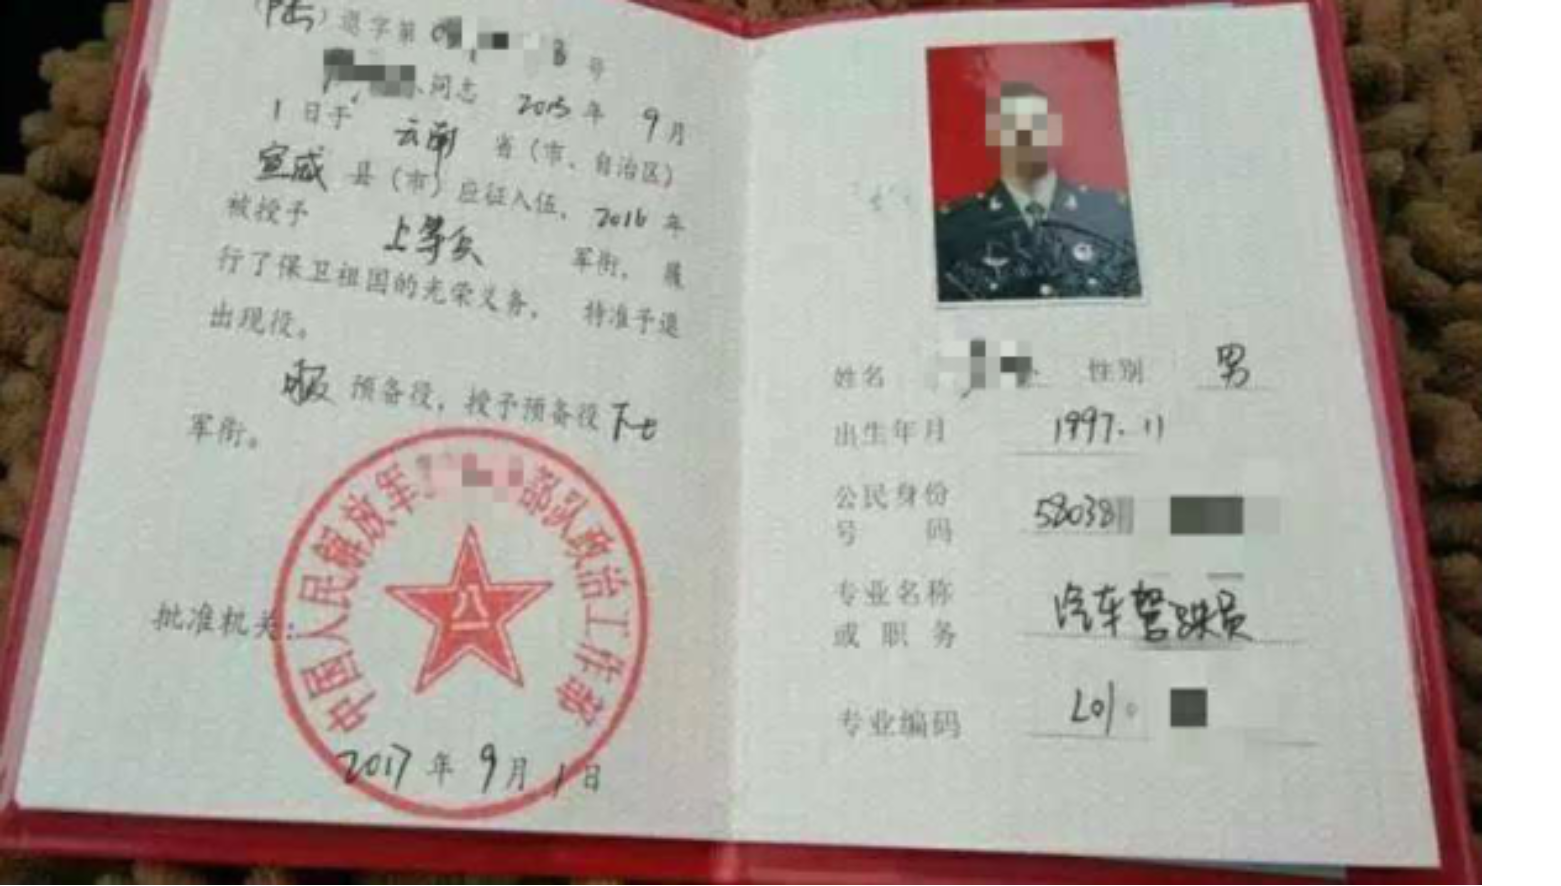 （陆）退字第 号
同志 2015 年 9 月
1 日于 云南 省（市、自治区）
宣威 县（市）应征入伍，2016 年
被授予 上等兵 军衔，履
行了保卫祖国的光荣义务，特准予退
出现役。
服 预备役，授予预备役 下士
军衔。
中国人民解放军 部队政治工作部
八一
批准机关：
2017 年 9 月 1 日
姓名 性别 男
出生年月 1997.11
公民身份
号 码 58038
专业名称
或 职 务 汽车驾驶员
专业编码 L01